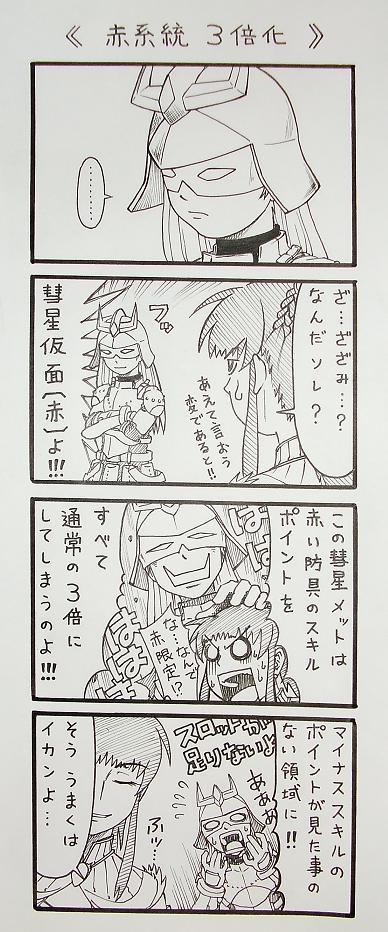 《 赤系統 3倍化 》
………
ざ…ざざみ…?
なんだソレ?
フッ
あえて言おう
変であると!!
彗星仮面〔赤〕よ!!!
この彗星メットは
赤い防具のスキル
ポイントを
すべて
通常の3倍に
してしまうのよ!!!
な…なんで
赤限定!?
ははは
ははは
マイナススキルの
ポイントが見た事の
ない領域に!!
スロットが
足りないよ
ああぁ
ふッ…
そううまくは
イカンよ…